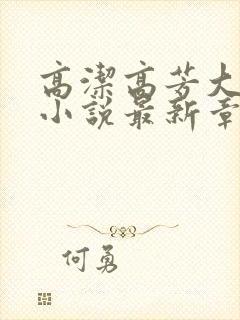 高潔高芳大
小說最新章
何勇